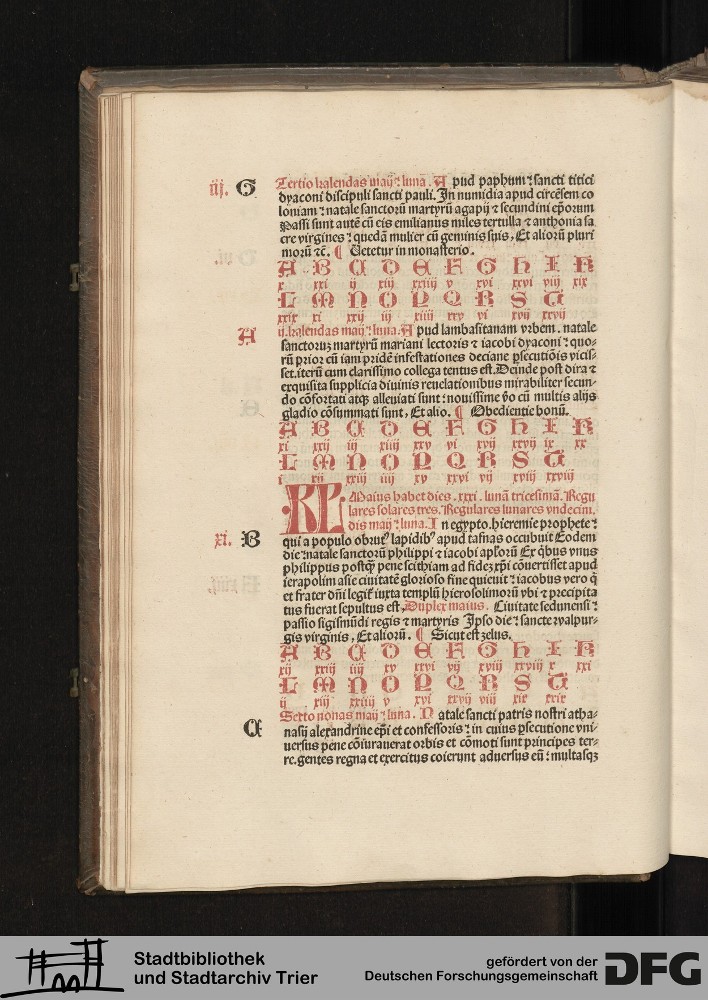 iij. G Tertio kalendas maij ⁊ luna. A pud paphum ⁊ sancti titici
dyaconi discipuli sancti pauli. In numidia apud circēsem co
loniam ⁊ natale sanctorū martyrū agapij ⁊ secundini ep̄orum
Passi sunt autē cū eis emilianus miles tertulla ⁊ anthonia sa
cre virgines ⁊ quedā mulier cū geminis suis, Et aliorū pluri
morū ⁊c̄. ¶ Uetetur in monasterio.
A B C D E F G H I K
x xxi ij xiij xxiiij v xvi xxvi viij xix
L M N O P Q R S U
xxix xi xxij iij xiiij xxv vi xvij xxvij
A ij. kalendas maij ⁊ luna. A pud lambasitanam vrbem. natale
sanctoruȝ martyrū mariani lectoris ⁊ iacobi dyaconi ⁊ quo-
rū prior cū iam pridē infestationes deciane ꝑsecutiōis vicis-
set. iterū cum clarissimo collega tentus est. Deīnde post dira ⁊
exquisita supplicia diuinis reuelationibus mirabiliter secun-
do cōfortati atqꝫ alleuiati sunt ⁊ nouissime v̄o cū multis alijs
gladio cōsummati sunt, Et alio. ¶ Obedientie bonū.
A B C D E F G H I K
xi xxij iij xiiij xxv vi xvij xxvij ix xx
L M N O P Q R S U
i xij xxiij iiij xv xxvi vij xviij xxviij
KL Maius habet dies .xxxi. lunā tricesimā. Regu
lares solares tres. Regulares lunares vndecim.
dis maij ⁊ luna. I n egypto. hieremie prophete ⁊
xi. B qui a populo obrutꝰ lapidibꝰ apud tafnas occubuit Eodem
die ⁊ natale sanctorū philippi ⁊ iacobi apl̄orū Ex q̄bus vnus
philippus postq̄ꝫ pene scithiam ad fideȝ xp̄i cōuertisset apud
ierapolim asie ciuitatē glorioso fine quieuit ⁊ iacobus vero q̄
et frater dn̄i legit᷑ iuxta templū hierosolimorū vbi ⁊ precipita
tus fuerat sepultus est, Duplex maius. Ciuitate sedunensi ⁊
passio sigismūdi regis ⁊ martyris Ipso die ⁊ sancte walpur-
gis virginis, Et aliorū. ¶ Sicut est zelus.
A B C D E F G H I K
xij xxiij iiij xv xxvi vij xviij xxviij x xxi
L M N O P Q R S U
ij xiij xxiiij v xvi xxvij viij xix xxix
C Sexto nonas maij ⁊ luna. N atale sancti patris nostri atha-
nasij alexandrine ep̄i et confessoris ⁊ in cuius ꝑsecutione vni-
uersus pene cōiurauerat orbis et cōmoti sunt principes ter-
re. gentes regna et exercitus coierunt aduersus eū ⁊ multasqꝫ
Stadtbibliothek
und Stadtarchiv Trier
gefördert von der
Deutschen Forschungsgemeinschaft
DFG